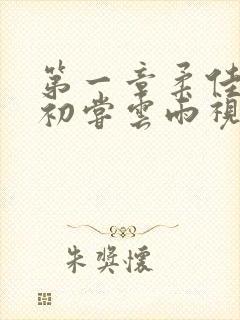 第一章柔佳
初尝云雨视
朱奖怀